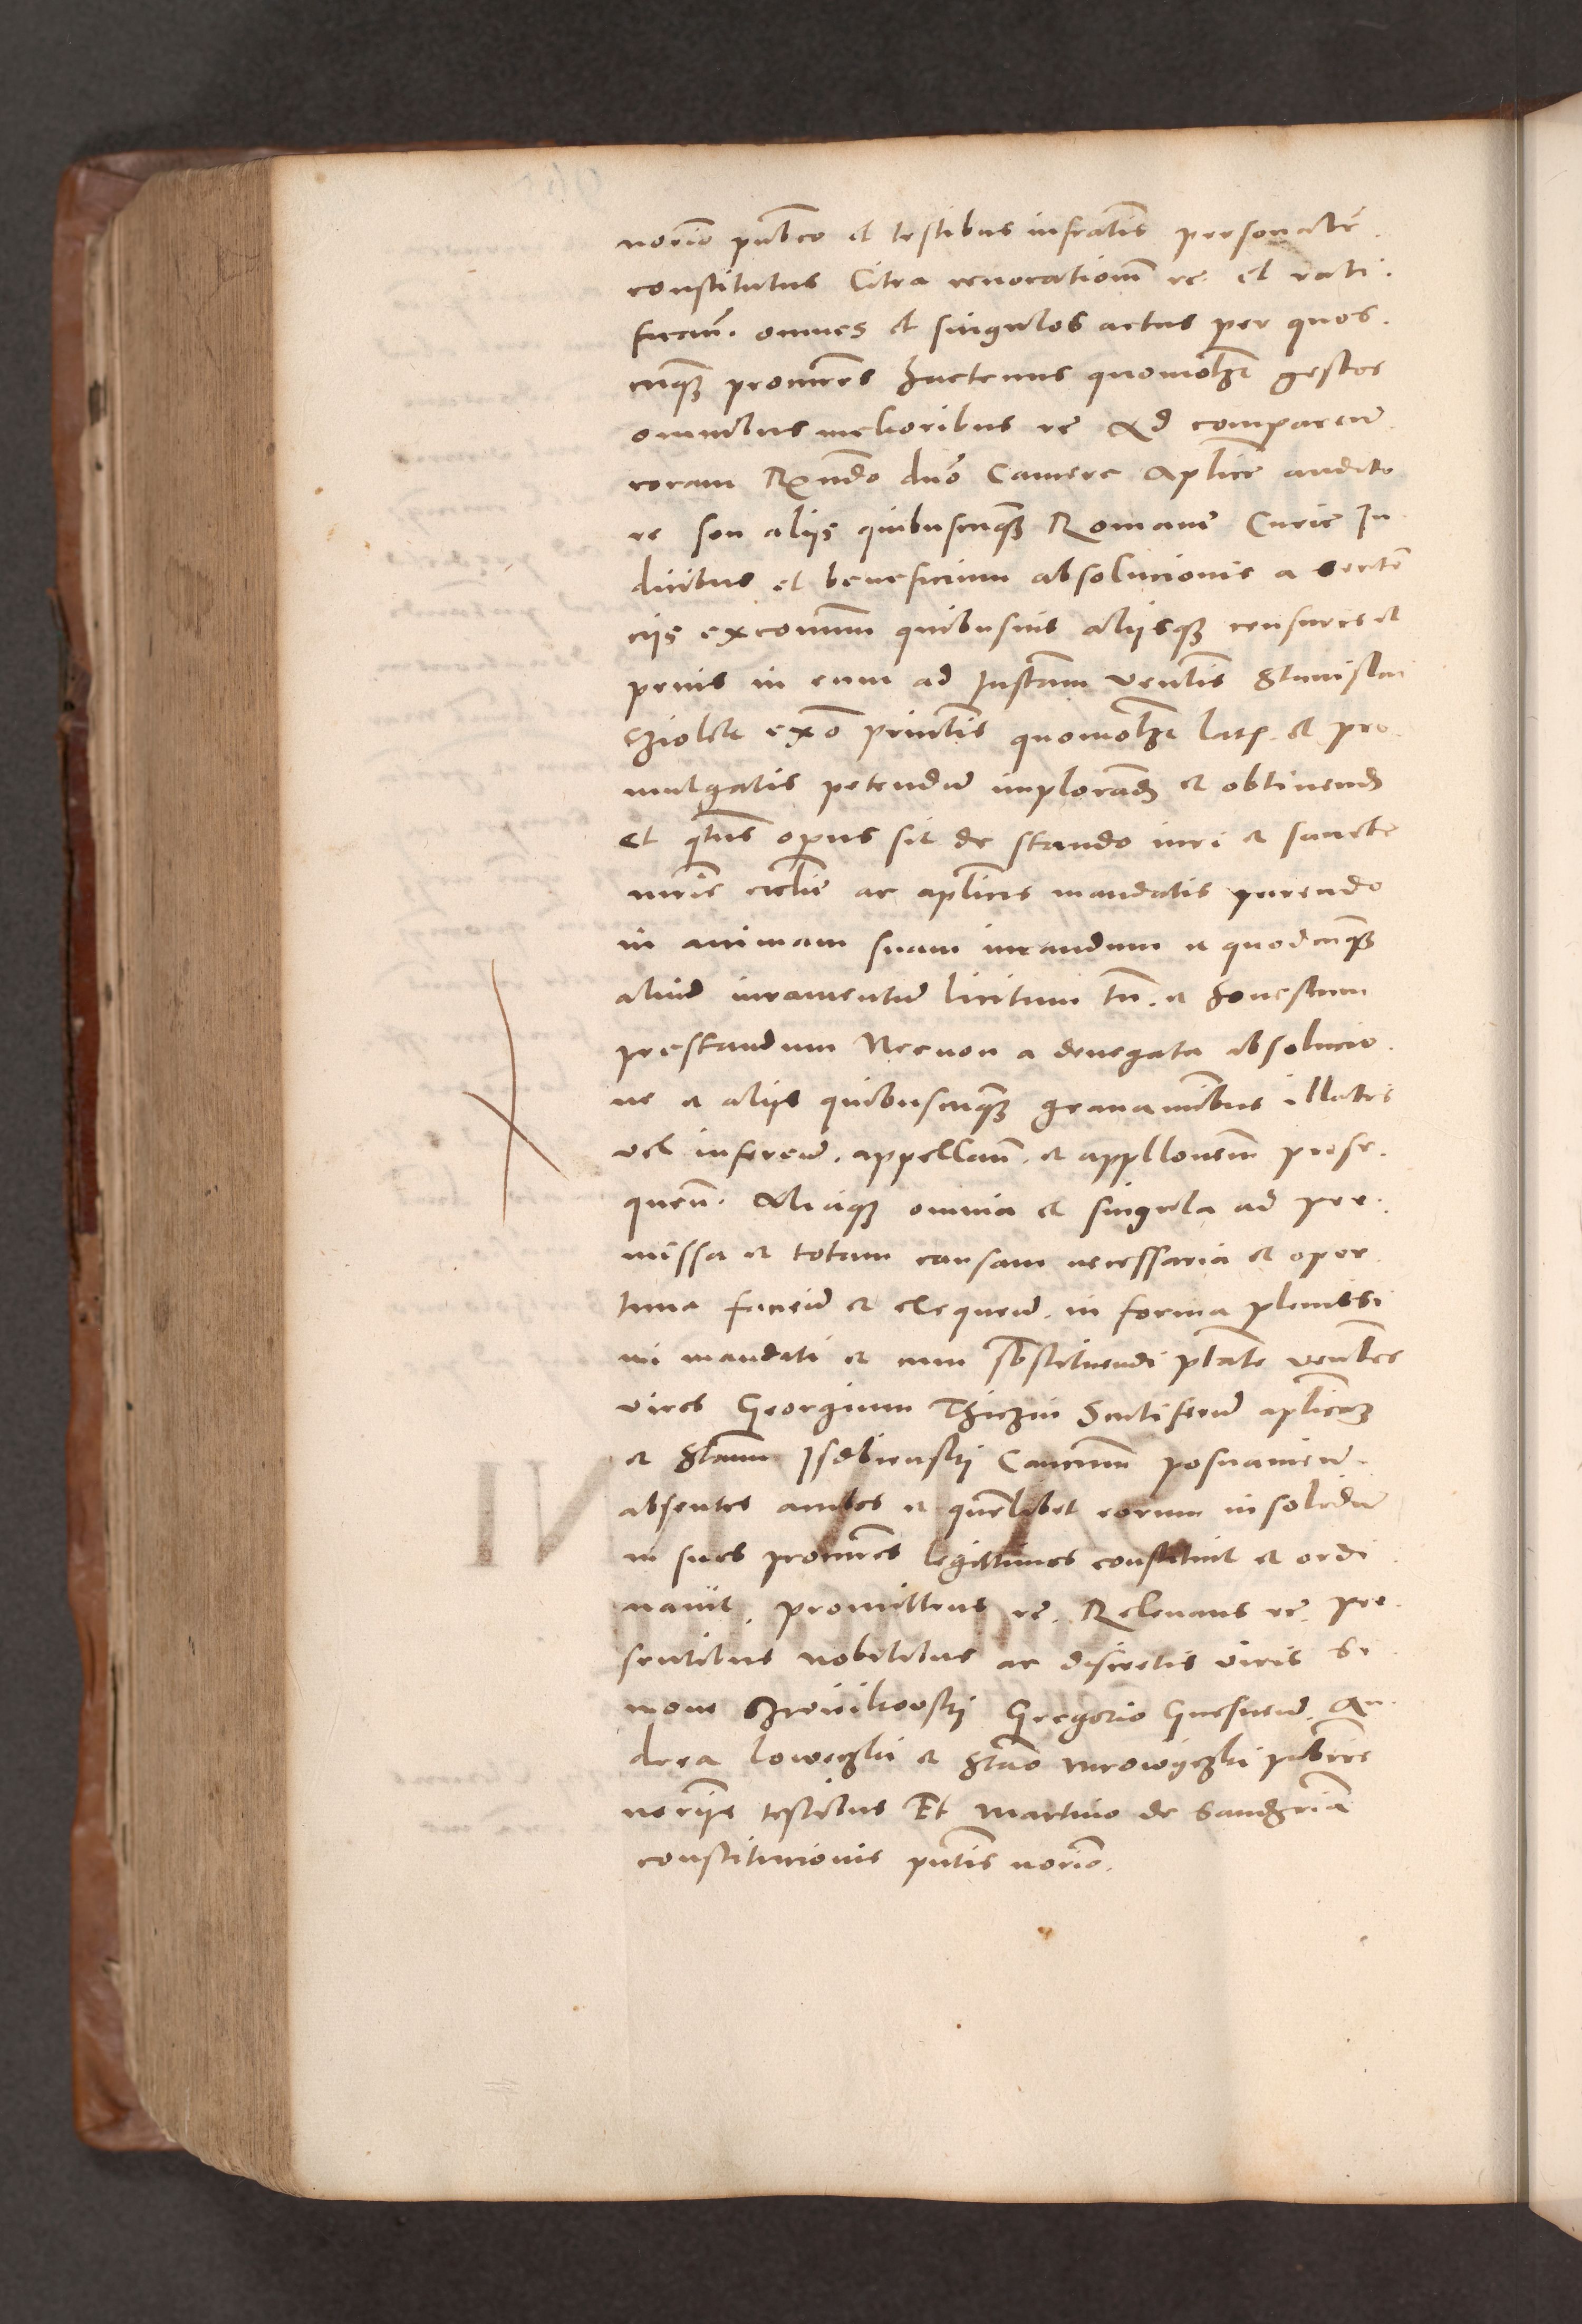 norio publico et testibus infratis personalr
constitutus Citra revocationem etc. et rati
ficand. omnes et singulos actus per quos
cunque procures hactenus quomolibet gestos
omnibus melioribus etc Ad comparend
coram Rendo dno Camere Aplice audito
re seu aliis quibuscunque Romane Curie Iu
dicibus et beneficium absolucionis a senten
ciis excomm quibusuis aliisque censuris et
penis in eum ad Instam venlis Stanislai
ex o principalis quomolibet latis et pro
mulgatis petendum implorand et obtinend
et qtnus opus sit de stando iuri et sancte
mris ecclie ac aplicis mandatis parendo
in animam suam iurandum et quodcunque
aliud iuramentum licitum tn. et honestum
prestandum Necnon a denegata absolucio
ne et aliis quibuscunque grauaminibus illatis
vel inferend. appelland. et appllonem prose
quend. Aliaque omnia et singula ad pre
missa et totam causam necessaria et opor
tuna faciend et exequend. in forma plenissi
mi mandati et cum substituendi ptate venbles
viros Georgium Thiczin Scutiferum aplicum
et Stanm Isdbienski Canicum posnanien.
absentes ambos et quemlibet eorum in solidum
in suos procures legittimos constituit et ordi
nauit. promittens etc. Releuans etc. pre
sentibus nobilibus ac discretis viris Si
mone Gregorio Gnesnen. An
drea et Stano publicis
noriis testibus Et Martino de
constitucionis pntis norio.